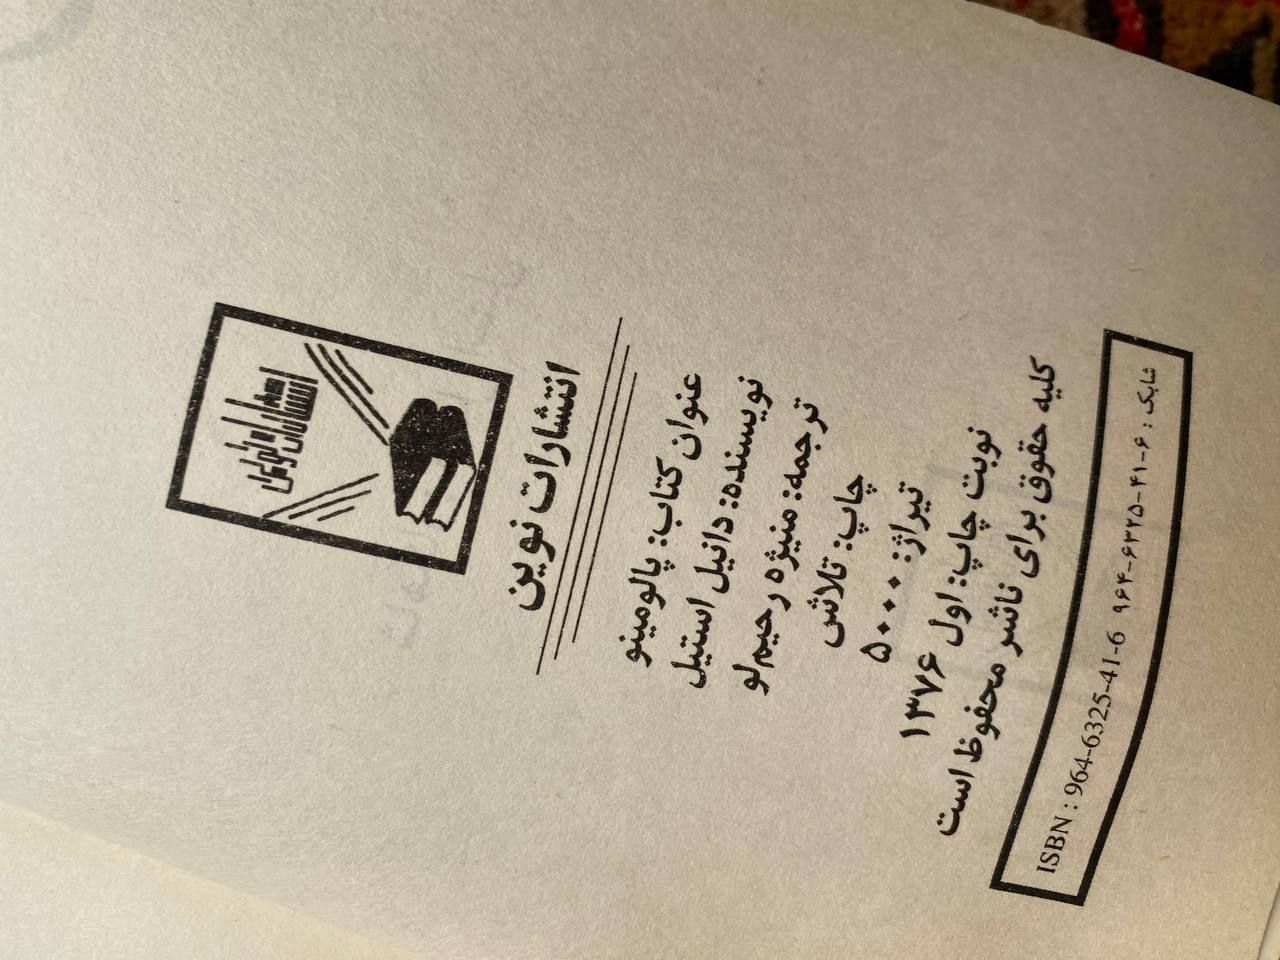 انتشارات نوین
انتشارات نوین
عنوان کتاب: پالومینو
نویسنده: دانیل استیل
ترجمه: منیژه رحیم‌لو
چاپ: تلاش
تیراژ: ۵۰۰۰
نوبت چاپ: اول ۱۳۷۶
کلیه حقوق برای ناشر محفوظ است
شابک : ۶-۴۱-۶۳۲۵-۹۶۴ ISBN : 964-6325-41-6